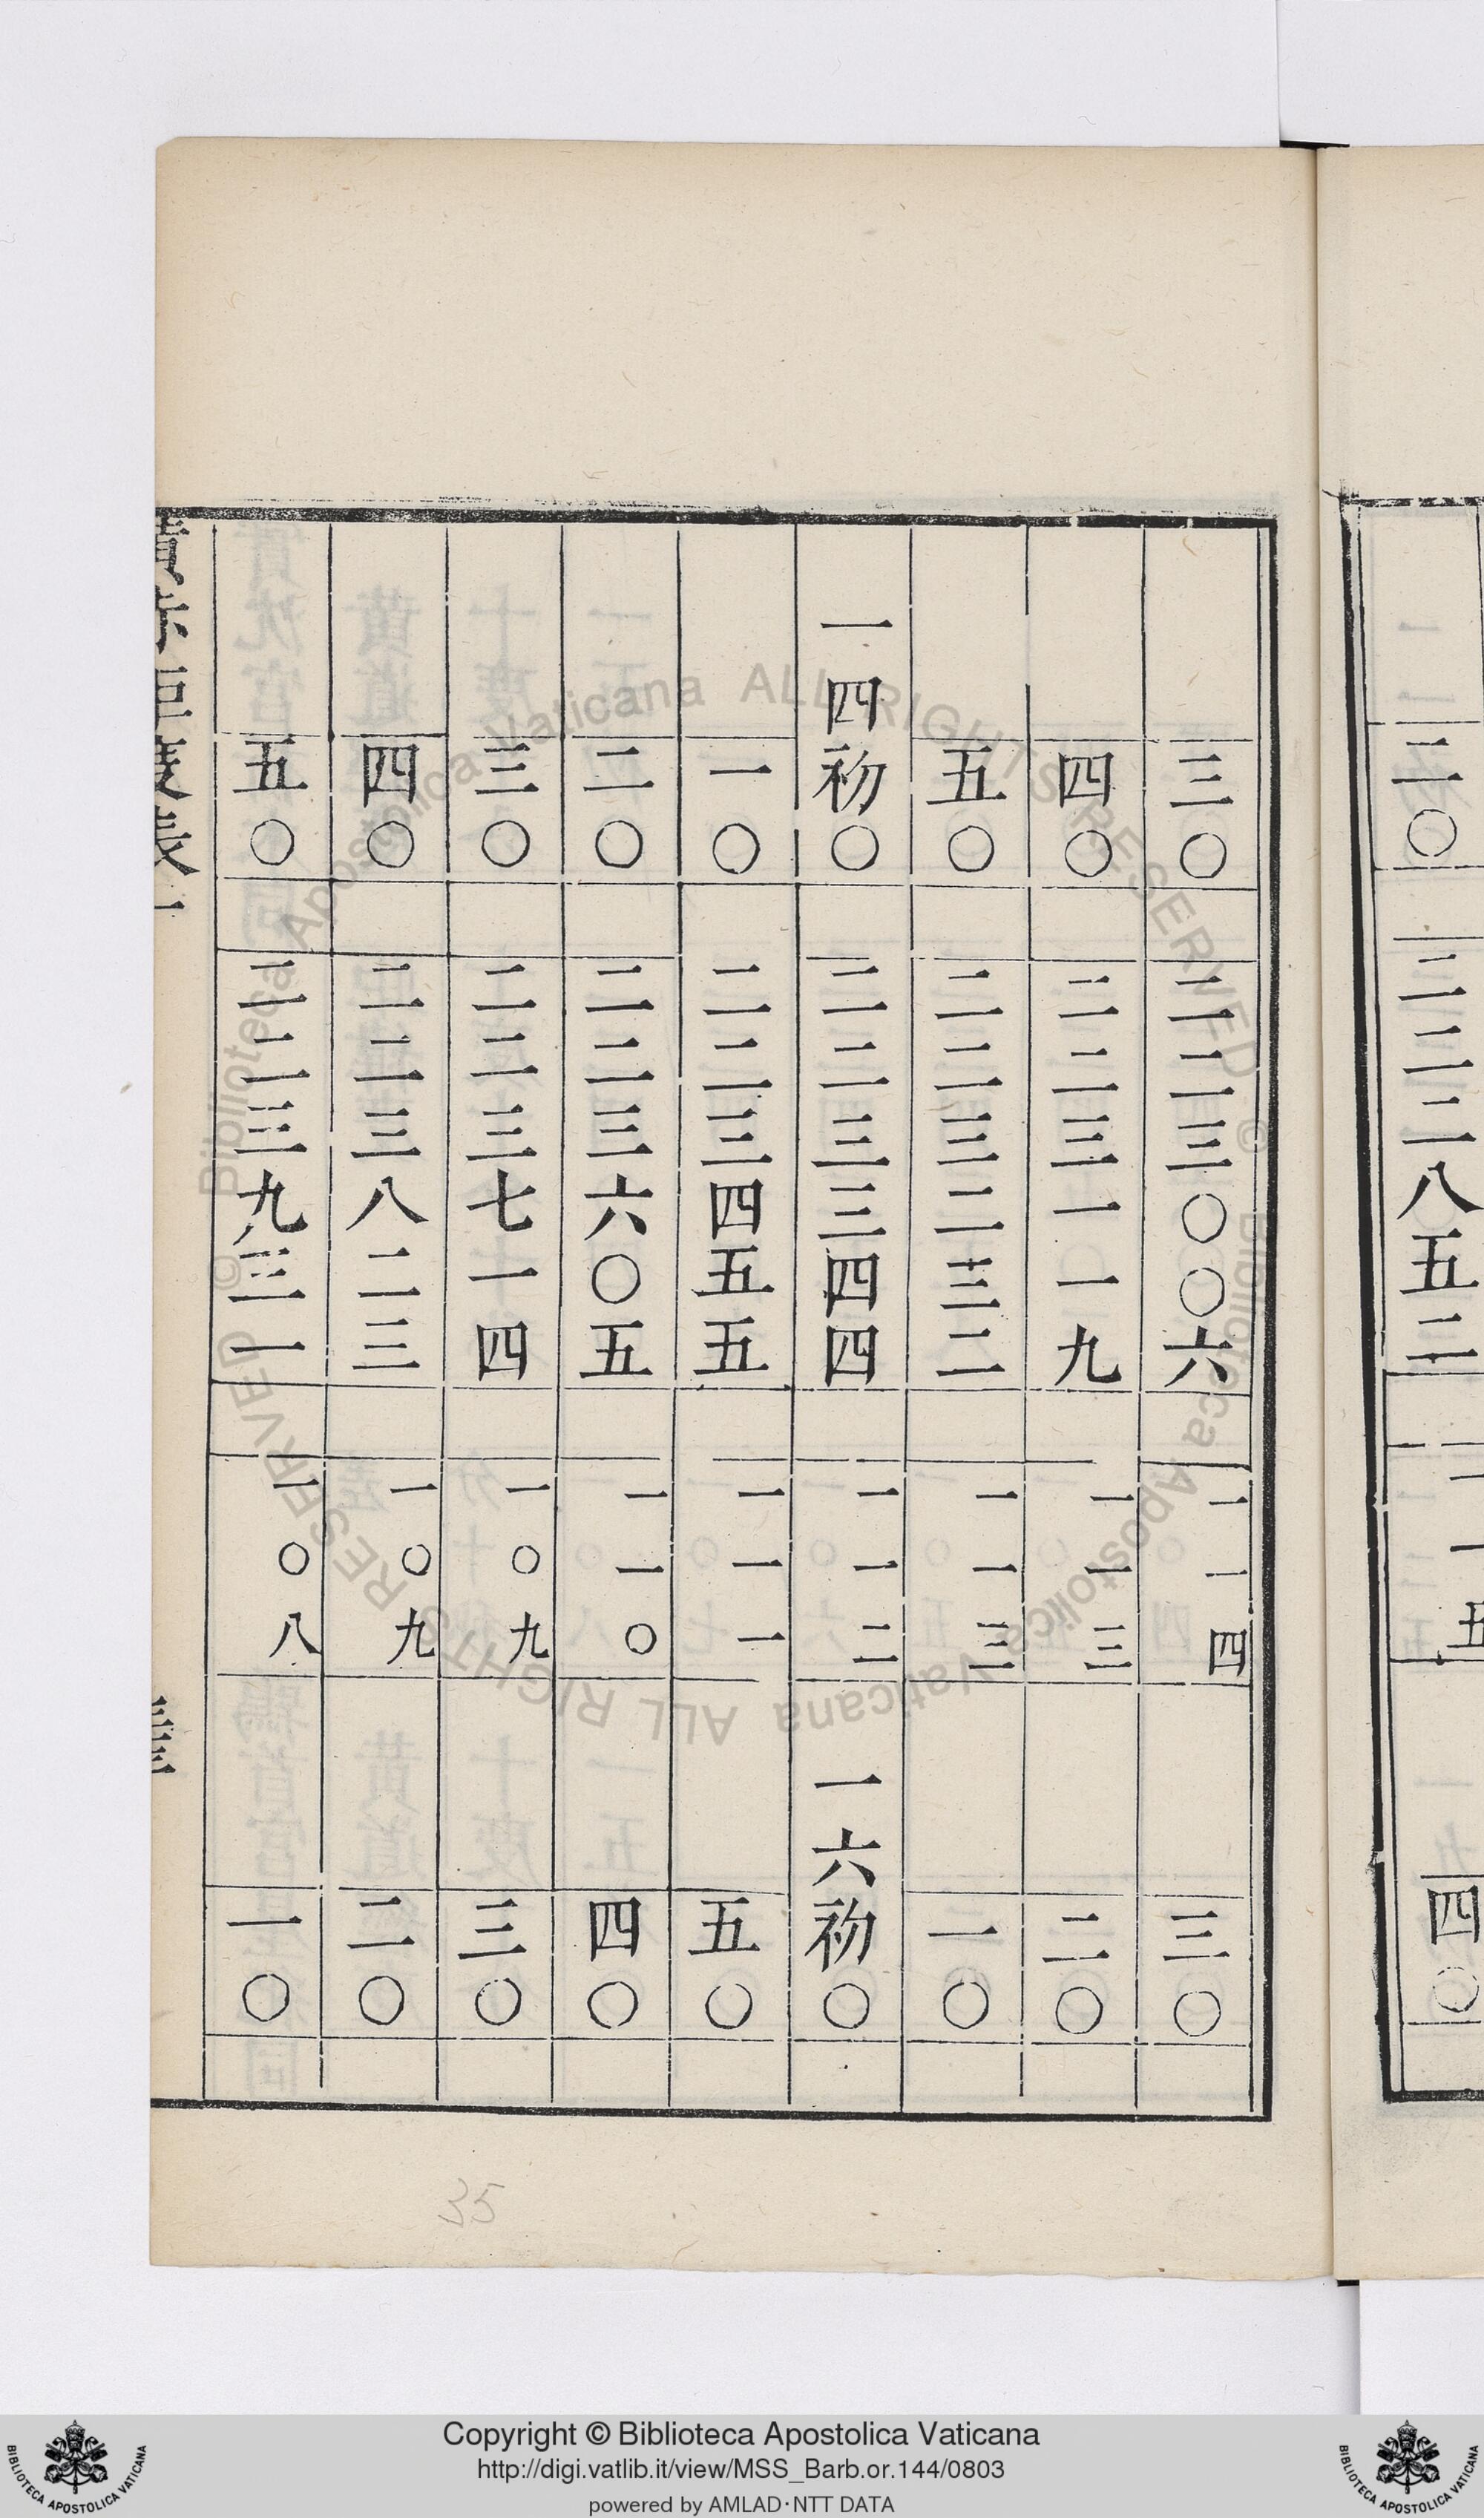 二〇 二二二八五二 一一五 四〇
三〇 二二三〇〇六 一一四 三〇
四〇 二二三一一九 一一三 二〇
五〇 二二三二三二 一一三 一〇
一四初〇 二二三三四四 一一二 一六初〇
一〇 二二三四五五 一一一 五〇
二〇 二二三六〇五 一一〇 四〇
三〇 二二三七一四 一〇九 三〇
四〇 二二三八二三 一〇九 二〇
五〇 二二三九三一 一〇八 一〇
35
Copyright © Biblioteca Apostolica Vaticana
http://digi.vatlib.it/view/MSS_Barb.or.144/0803
powered by AMLAD·NTT DATA